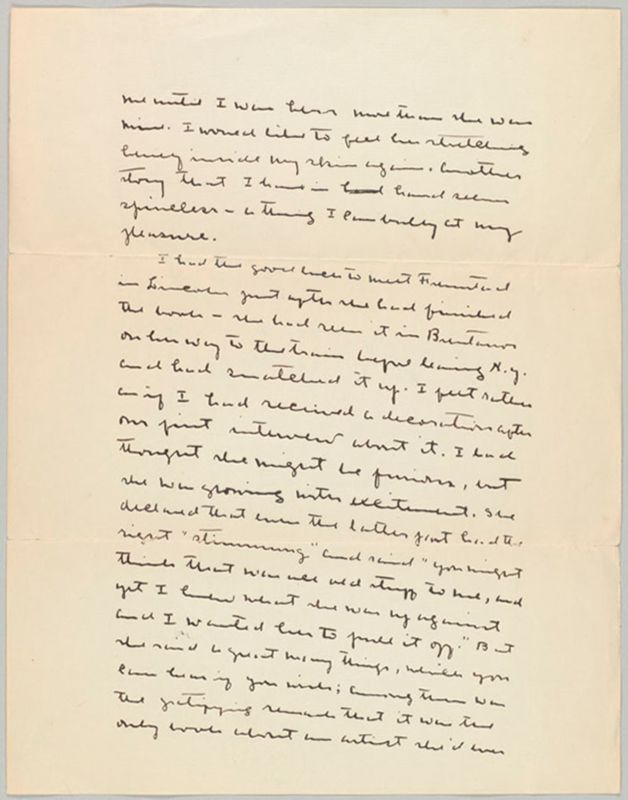 me until I was hers more than she was
mine. I would like to feel her stretching
herself inside my skin again. Another
story that I have in hand seems
spineless - a thing I can bully at my
pleasure.
I had the good luck to meet Fremstad
in Lincoln just after she had finished
the book - she had seen it in Brentanos
on her way to the train before leaving N.Y.
and had snatched it up. I felt rather
as if I had received a decoration after
our first interview about it. I had
thought she might be furious, but
she was glowing with excitement. She
declared that even the latter part had the
right "stimmung" and said "you might
think that was all old stuff to me, and
yet I knew what she was up against
and I wanted her to pull it off." But
she said a great many things, which you
can hear if you wish; among them was
the gratifying remark that it was the
only book about an artist she'd ever